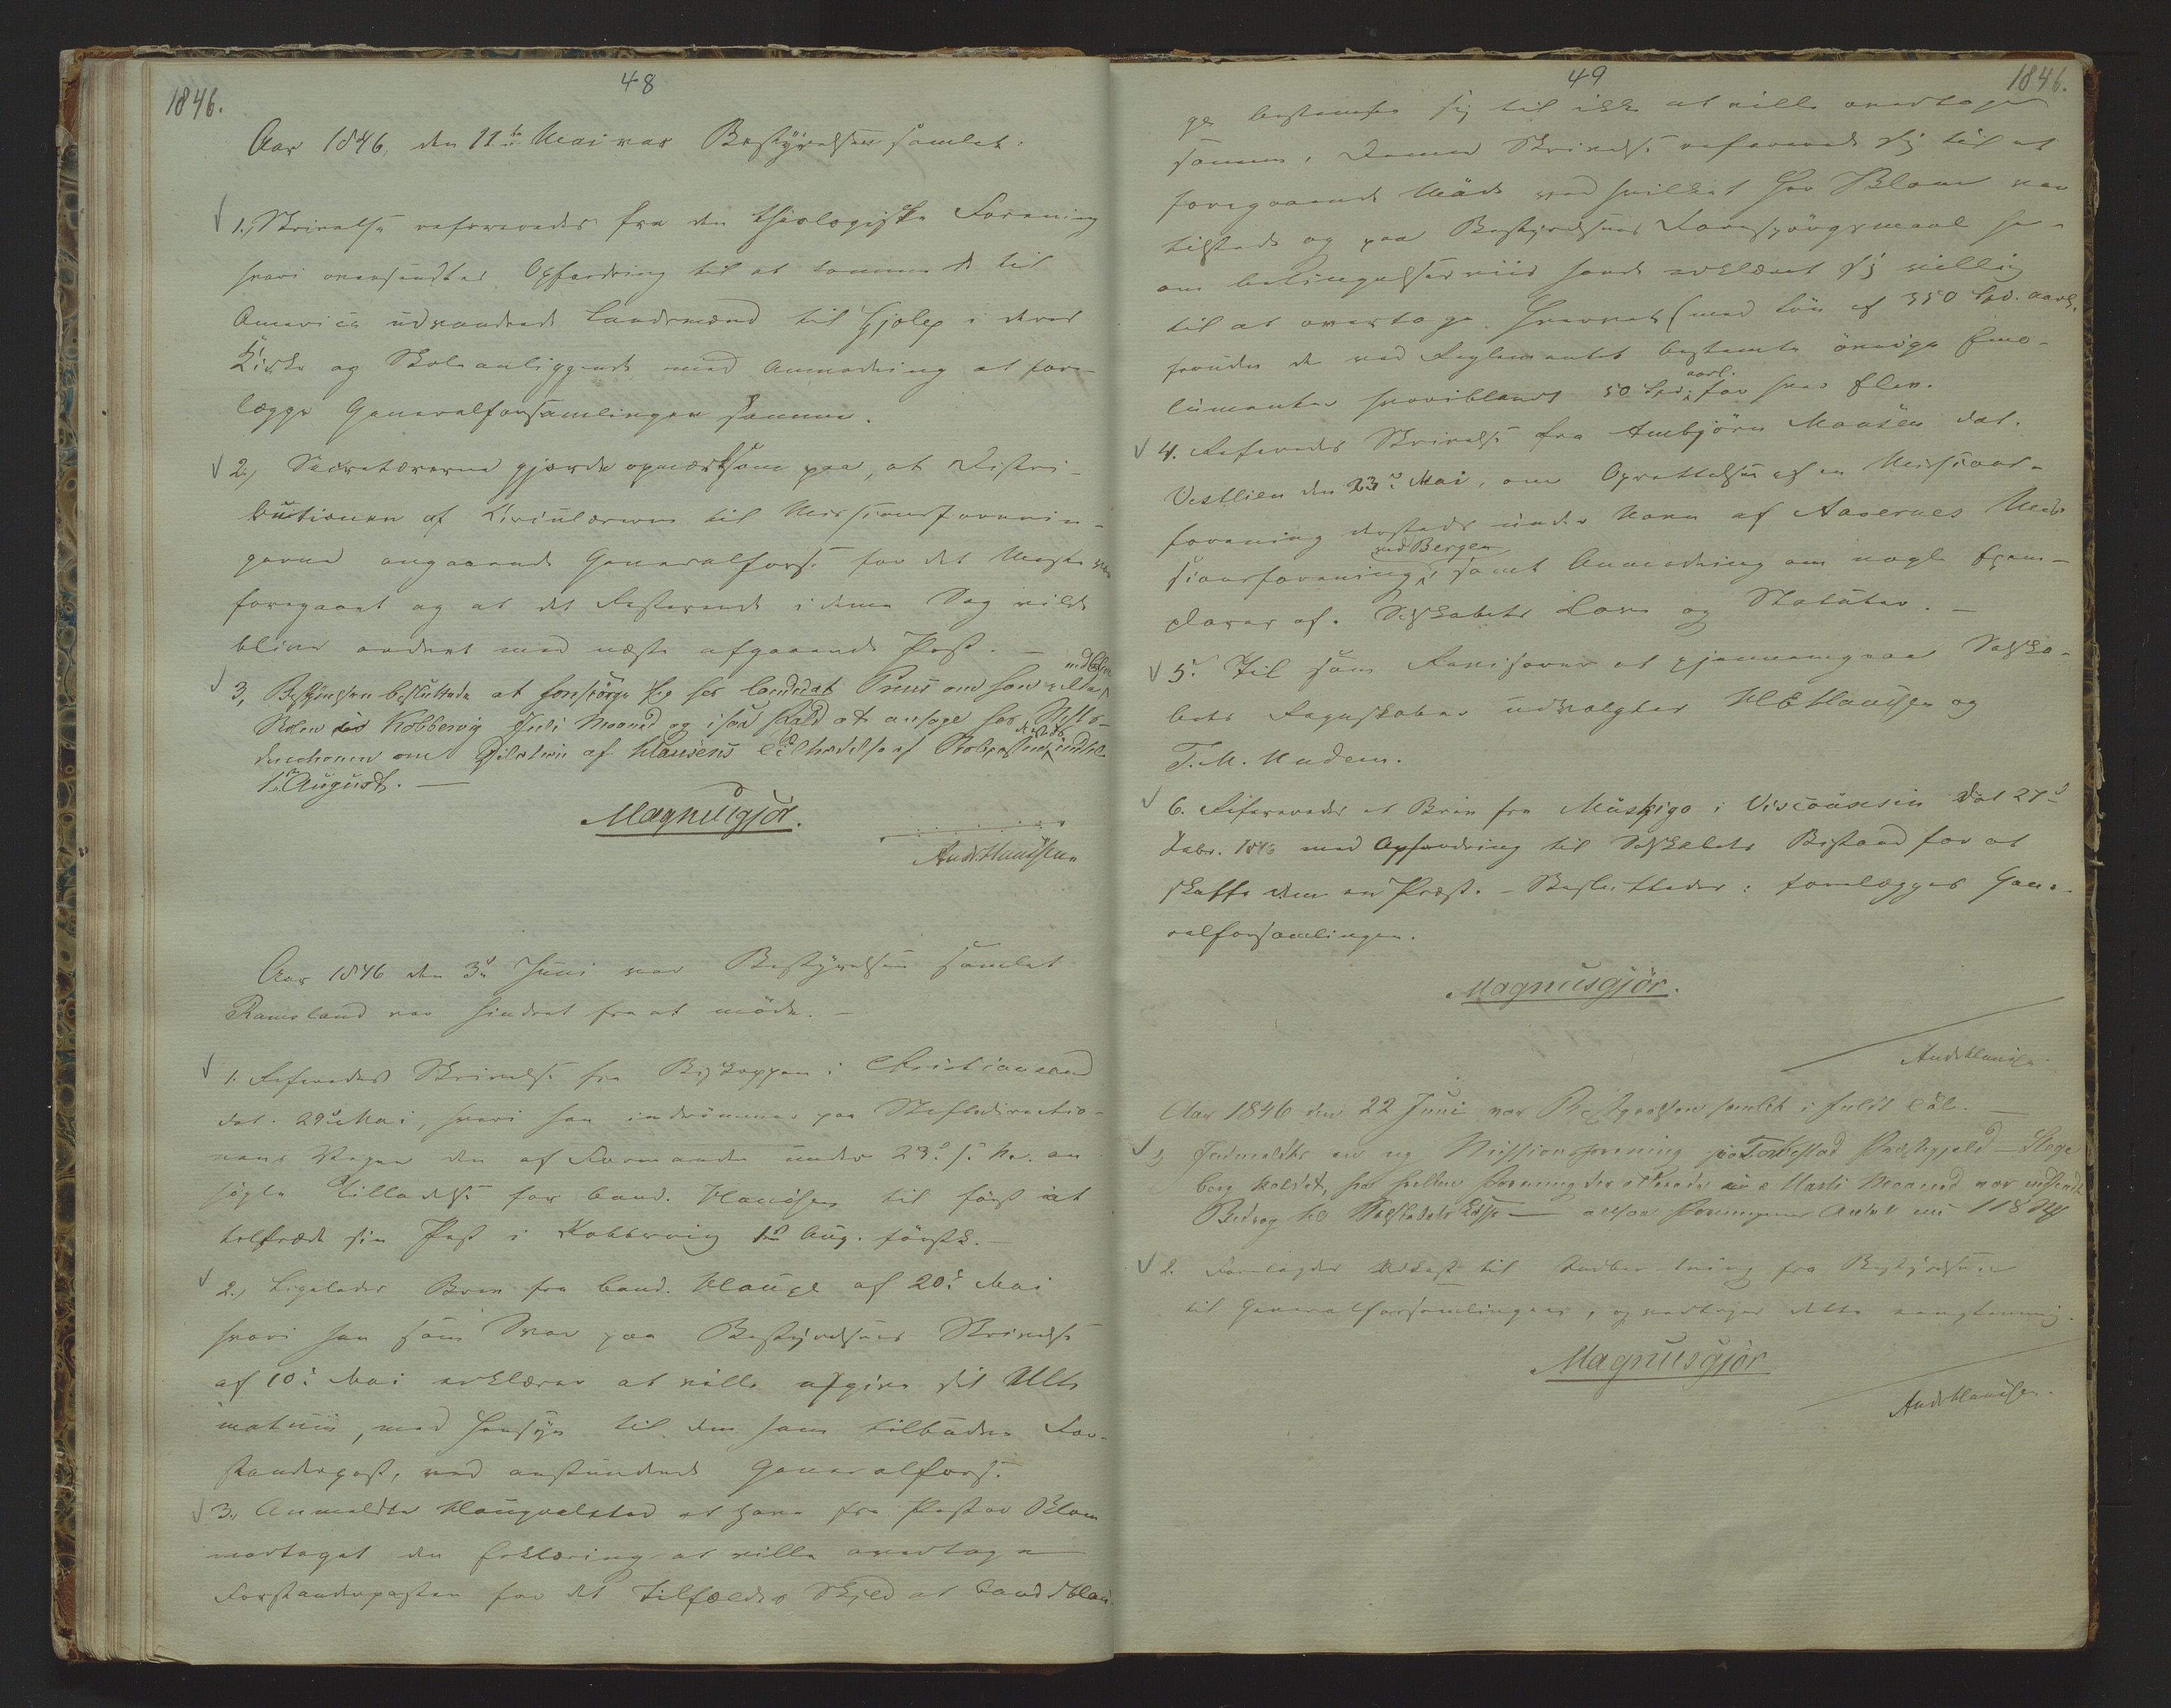 48
1846.
Aar 1846, den 11te Mai var Bestyrelsen samlet:
1., Skrivelse refereredes fra den theologiske Forening
hvori oversendtes Opfordring til at komme de til
America udvandrede Landsmænd til Hjelp i deres
Kirke og Skoleanliggende med Anmodning at fore-
lægge Generalforsamlingen samme.
2., Secretærerne gjorde opmærksom paa, at Distri-
butionen af Circulærerne til Missionsforenin-
gerne angaaende Generalfors. for det Meste var
foregaaet og at det Resterende i denne Sag vilde
blive ordnet med næste afgaaende Post. –
3, Bestyrelsen besluttede at forespörge sig hos Candidat om han vilde
Skolen ved Kobbervig Juli Maaned og i saa Fald at ansøge hos Stifts-
directionen om af Hausens Tiltrædelse af Skoleposten indtil
1ste August. –
Magnusgjör.
And. Hauchen
Aar 1846 den 3d Juni var Bestyrelsen samlet
Ramsland var hindret fra at möde. –
1. Refereredes Skrivelse fra Biskoppen i Christiansand
dat. 29d Mai, hvori han indrömmer paa Stiftsdirectio-
nens Vegne den af Formanden under 23d s. M. an-
sögte Tilladelse for Cand. Hausen til först at
tiltræde sin Post i Kobbervig 1d Aug. förstk. –
2., Ligeledes Brev fra Cand. Hauge af 20d Mai
hvori han som Svar paa Bestyrelsens Skrivelse
af 10d Mai erklærer at ville afgive sit Ulti-
matum, med Hensyn til den ham tilbudne For-
standerpost, ved anstundende Generalfors.
3., Anmeldte Haugvaldstad at have fra Pastor Blom
modtaget den Erklæring at ville overtage
Forstanderposten for det Tilfældes Skyld at Cand. Hau-
49
1846.
ge bestemte sig til ikke at ville overtage
samme, denne Skrivelse refererede sig til et
foregaaende Möde ved hvilket Hr Blom var
tilstede og paa Bestyrelsens Forespörgsmaal her-
om betingelsesviis havde erklæret sig villig
til at overtage Hvervet (med Lön af 350 Spd. aarl.
foruden de ved Reglementet bestemte övrige Emo-
lumenter hvoriblandt 50 Spd. aarl. for hver Elev.
4. Refereredes Skrivelse fra Ambjörn Monsen dat.
Vestlien den 23d Mai, om Oprettelsen af en Missions-
forening dersteds under Navn af Aasernes Mis-
sionsforening ved Bergen, samt Anmodning om nogle Exem-
plarer af Selskabets Love og Statuter. –
5. Til som Revisorer at gjennemgaae Selska-
bets Regnskaber udvalgtes H C Hauchen og
T. M. Madem.
6. Refereredes et Brev fra Muskigo i Visconsin dat 27d
Febr. 1846 med Opfordring til Selskabets Bistand for at
skaffe dem en Præst. – Besluttedes: forelægges Gene-
ralforsamlingen.
Magnusgjör.
And. Hauchen
Aar 1846 den 22 Juni var Bestyrelsen samlet i fuldt Tal. –
1) Indmeldtes en ny Missionsforening paa Præstegjeld –
Bidrag til Selskabets Casse – altsaa Foreningernes Antal nu 118
2. Forelagdes Udkast til Indberetning fra Bestyrelsen
til Generalforsamlingen, og vedtoges dette eenstemmig.
Magnusgjör
And. Hauchen